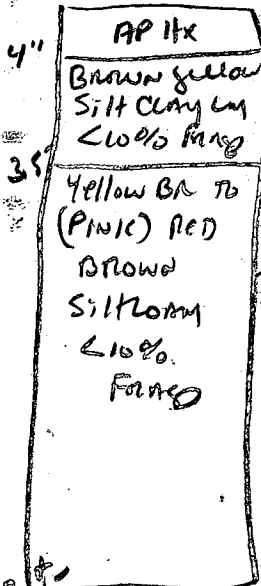 AP Hx
4"
BROWN yellow
Silt CLAY LM
<10% FRAG
3.5'
Yellow BR TO
(PINK) RED
BROWN
Silt LOAM
<10%
FRAG